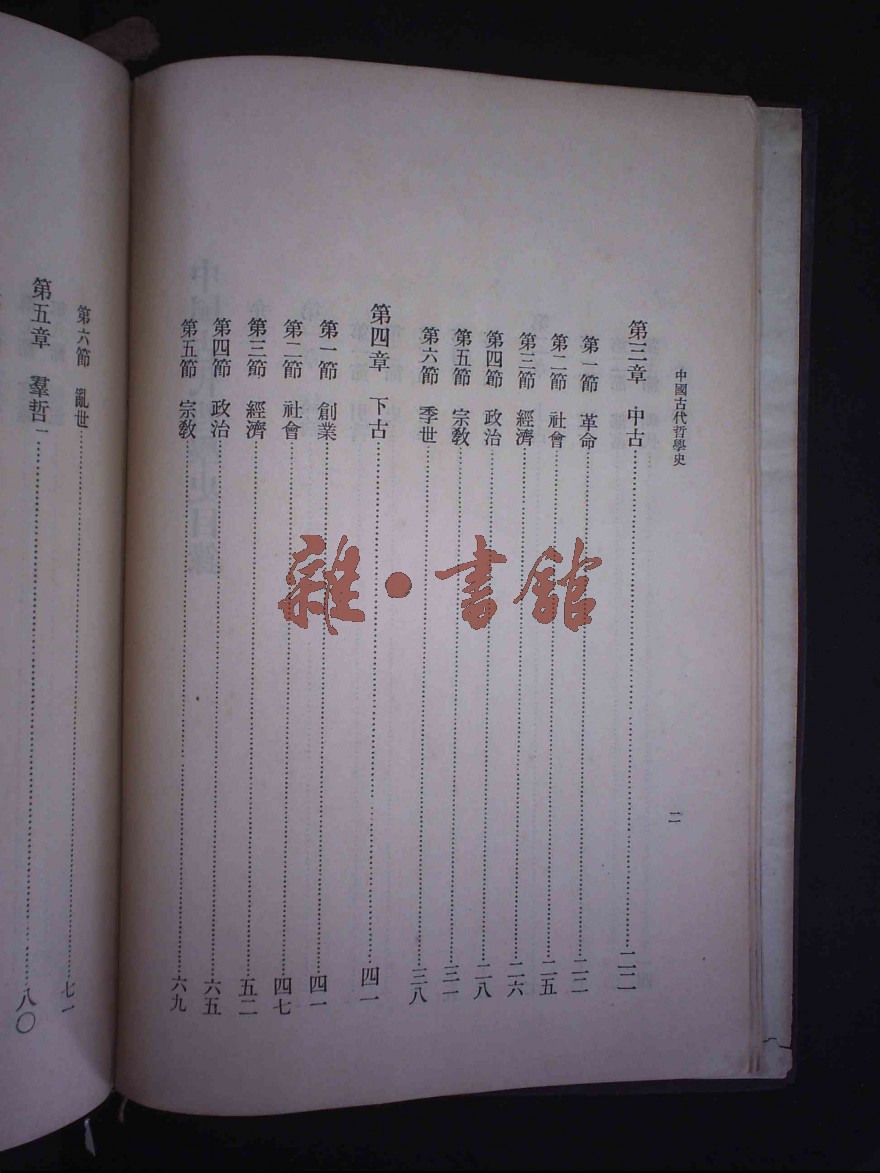 中國古代哲學史
二
第三章 中古……二二
第一節 革命……二二
第二節 社會……二五
第三節 經濟……二六
第四節 政治……二八
第五節 宗教……三一
第六節 季世……三八
第四章 下古……四一
第一節 創業……四一
第二節 社會……四七
第三節 經濟……五二
第四節 政治……六五
第五節 宗教……六九
第六節 亂世……七一
第五章 羣哲一……八〇
雜·書館